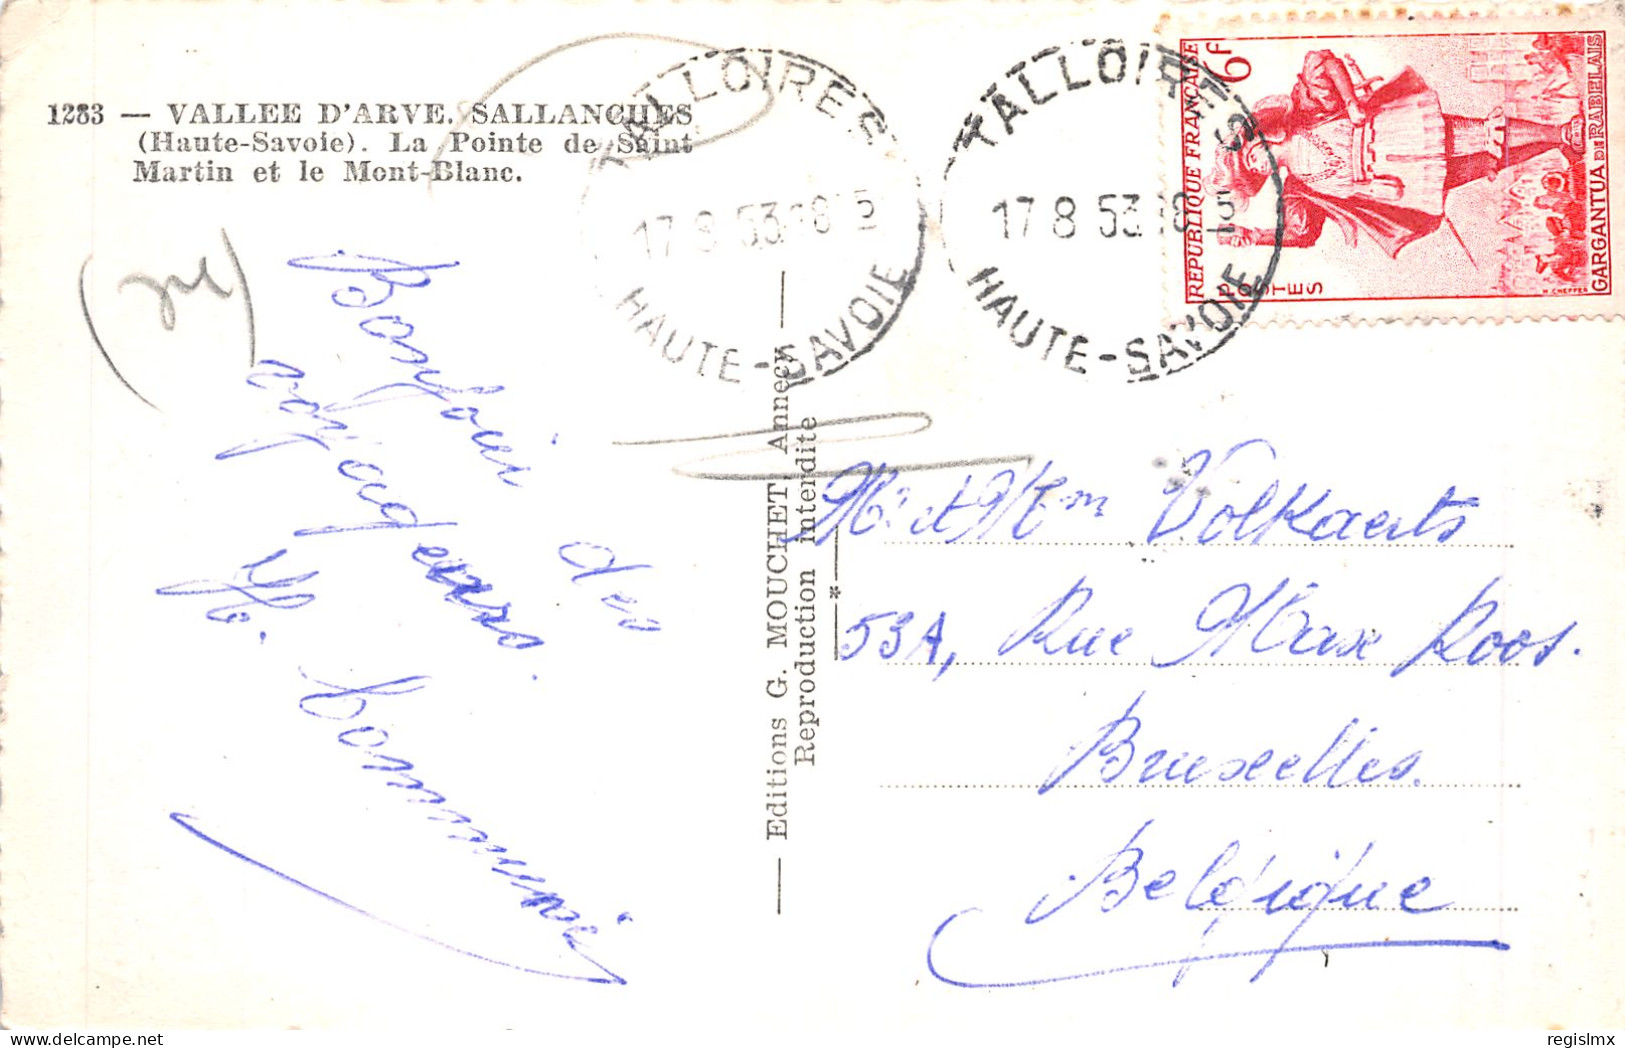 1283 — VALLEE D'ARVE. SALLANCHES
(Haute-Savoie). La Pointe de Saint
Martin et le Mont-Blanc.
TALLOIRES
17 8 53 18 15
HAUTE-SAVOIE
TALLOIRES
17 8 53 18 15
HAUTE-SAVOIE
REPUBLIQUE FRANCAISE
6F
POSTES
GARGANTUA DE RABELAIS
H. CHEFFER
Bonjour des
voyageurs.
— Editions G. MOUCHET Annecy —
Reproduction interdite
*
Mr et Mme Volkaerts
53A, Rue Max Roos.
Bruxelles.
Belgique
regislmx